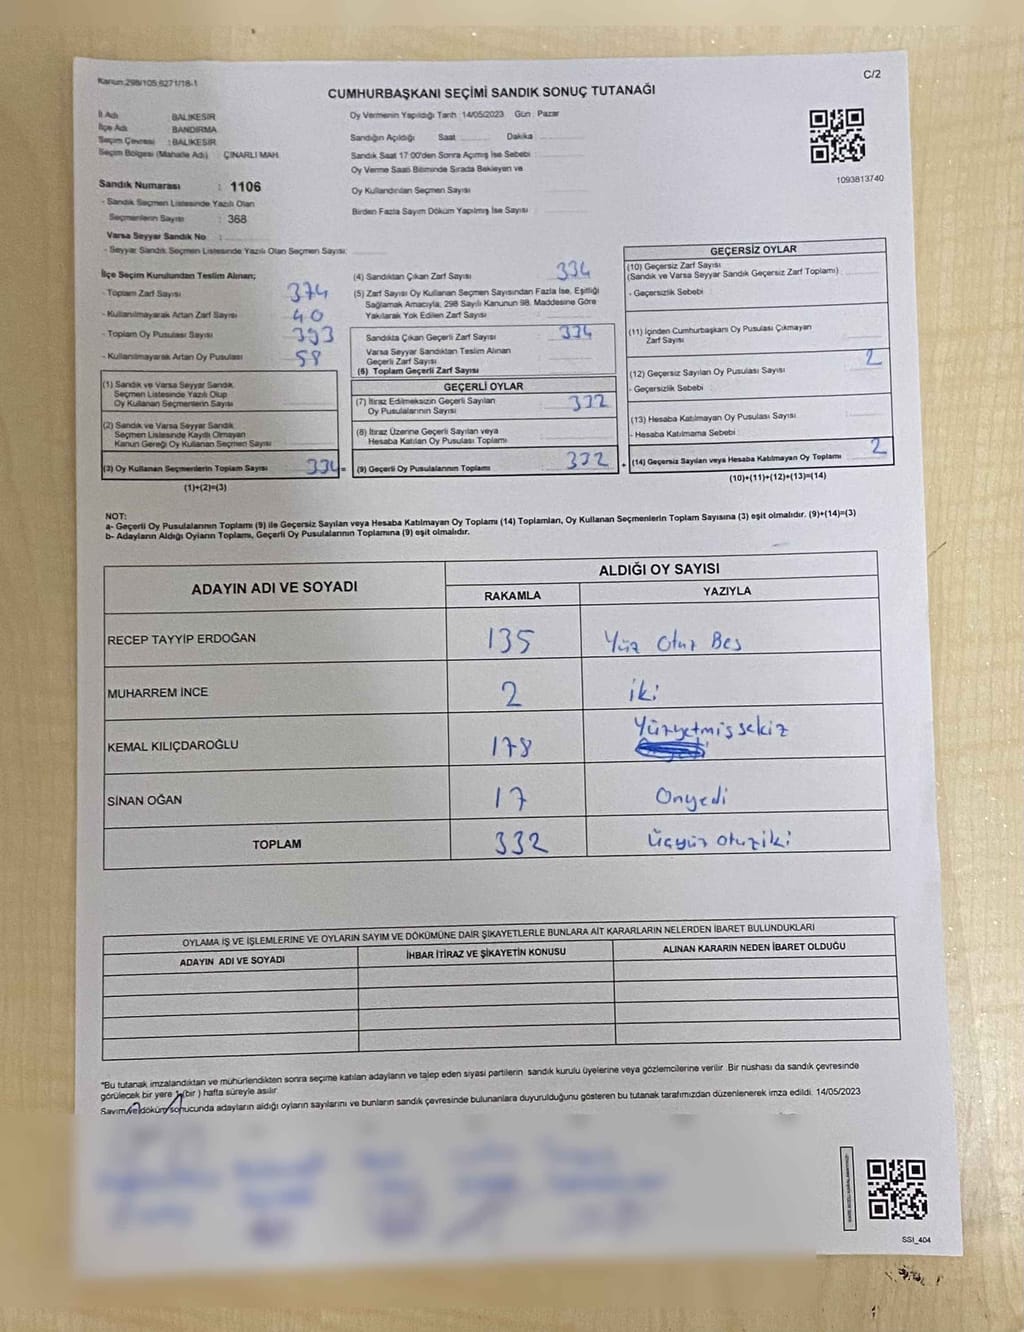 Kanun:298/105;6271/18-1
C/2
CUMHURBAŞKANI SEÇİMİ SANDIK SONUÇ TUTANAĞI
1093813740
İl Adı BALIKESİR
İlçe Adı BANDIRMA
Seçim Çevresi : BALIKESİR
Seçim Bölgesi (Mahalle Adı) : ÇINARLI MAH.
Sandık Numarası : 1106
- Sandık Seçmen Listesinde Yazılı Olan
Seçmenlerin Sayısı : 368
Varsa Seyyar Sandık No :
- Seyyar Sandık Seçmen Listesinde Yazılı Olan Seçmen Sayısı:
Oy Vermenin Yapıldığı Tarih :14/05/2023 Gün : Pazar
Sandığın Açıldığı Saat Dakika
Sandık Saat 17:00'den Sonra Açılmış İse Sebebi :
Oy Verme Saati Bitiminde Sırada Bekleyen ve
Oy Kullandırılan Seçmen Sayısı
Birden Fazla Sayım Döküm Yapılmış İse Sayısı
İlçe Seçim Kurulundan Teslim Alınan;
- Toplam Zarf Sayısı 374
- Kullanılmayarak Artan Zarf Sayısı 40
- Toplam Oy Pusulası Sayısı 393
- Kullanılmayarak Artan Oy Pusulası 58
(1) Sandık ve Varsa Seyyar Sandık
Seçmen Listesinde Yazılı Olup
Oy Kullanan Seçmenlerin Sayısı
(2) Sandık ve Varsa Seyyar Sandık
Seçmen Listesinde Kayıtlı Olmayan
Kanun Gereği Oy Kullanan Seçmen Sayısı
(3) Oy Kullanan Seçmenlerin Toplam Sayısı 334 =
(1)+(2)=(3)
(4) Sandıktan Çıkan Zarf Sayısı 334
(5) Zarf Sayısı Oy Kullanan Seçmen Sayısından Fazla İse, Eşitliği
Sağlamak Amacıyla, 298 Sayılı Kanunun 98. Maddesine Göre
Yakılarak Yok Edilen Zarf Sayısı
Sandıkta Çıkan Geçerli Zarf Sayısı 334
Varsa Seyyar Sandıktan Teslim Alınan
Geçerli Zarf Sayısı
(6) Toplam Geçerli Zarf Sayısı
GEÇERLİ OYLAR
(7) İtiraz Edilmeksizin Geçerli Sayılan
Oy Pusulalarının Sayısı 332
(8) İtiraz Üzerine Geçerli Sayılan veya
Hesaba Katılan Oy Pusulası Toplamı
(9) Geçerli Oy Pusulalarının Toplamı 332 +
GEÇERSİZ OYLAR
(10) Geçersiz Zarf Sayısı
(Sandık ve Varsa Seyyar Sandık Geçersiz Zarf Toplamı)
- Geçersizlik Sebebi
(11) İçinden Cumhurbaşkanı Oy Pusulası Çıkmayan
Zarf Sayısı
(12) Geçersiz Sayılan Oy Pusulası Sayısı 2
- Geçersizlik Sebebi
(13) Hesaba Katılmayan Oy Pusulası Sayısı
- Hesaba Katılmama Sebebi
(14) Geçersiz Sayılan veya Hesaba Katılmayan Oy Toplamı 2
(10)+(11)+(12)+(13)=(14)
NOT:
a- Geçerli Oy Pusulalarının Toplamı (9) ile Geçersiz Sayılan veya Hesaba Katılmayan Oy Toplamı (14) Toplamları, Oy Kullanan Seçmenlerin Toplam Sayısına (3) eşit olmalıdır. (9)+(14)=(3)
b- Adayların Aldığı Oyların Toplamı, Geçerli Oy Pusulalarının Toplamına (9) eşit olmalıdır.
ADAYIN ADI VE SOYADI
ALDIĞI OY SAYISI
RAKAMLA YAZIYLA
RECEP TAYYİP ERDOĞAN 135 Yüz Otuz Beş
MUHARREM İNCE 2 iki
KEMAL KILIÇDAROĞLU 178 Yüzyetmişsekiz
SİNAN OĞAN 17 Onyedi
TOPLAM 332 Üçyüz otuziki
OYLAMA İŞ VE İŞLEMLERİNE VE OYLARIN SAYIM VE DÖKÜMÜNE DAİR ŞİKAYETLERLE BUNLARA AİT KARARLARIN NELERDEN İBARET BULUNDUKLARI
ADAYIN ADI VE SOYADI İHBAR İTİRAZ VE ŞİKAYETİN KONUSU ALINAN KARARIN NEDEN İBARET OLDUĞU
*Bu tutanak imzalandıktan ve mühürlendikten sonra seçime katılan adayların ve talep eden siyasi partilerin sandık kurulu üyelerine veya gözlemcilerine verilir. Bir nüshası da sandık çevresinde
görülecek bir yere 1 (bir ) hafta süreyle asılır.
Sayım ve döküm sonucunda adayların aldığı oyların sayılarını ve bunların sandık çevresinde bulunanlara duyurulduğunu gösteren bu tutanak tarafımızdan düzenlenerek imza edildi. 14/05/2023
SSI_404